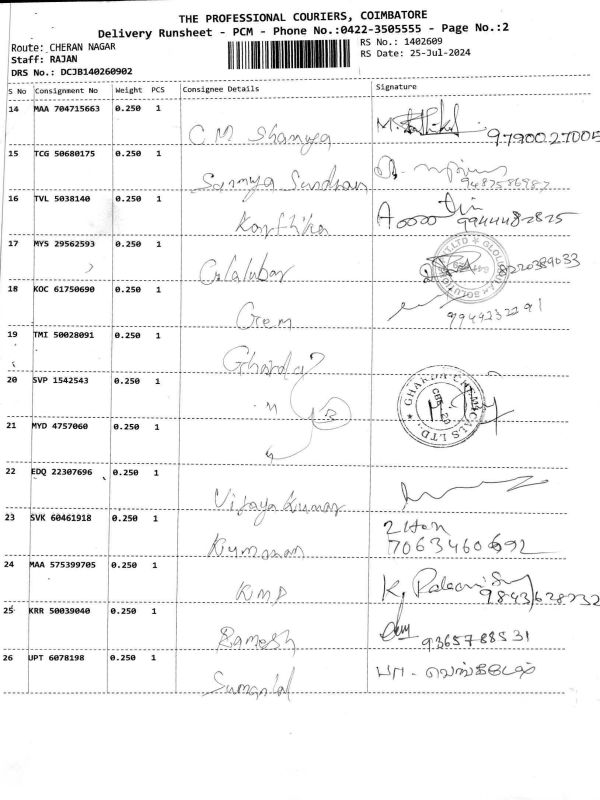 THE PROFESSIONAL COURIERS, COIMBATORE
Delivery Runsheet - PCM - Phone No.:0422-3505555 - Page No.:2
Route: CHERAN NAGAR
RS No.: 1402609
Staff: RAJAN
RS Date: 25-Jul-2024
DRS No.: DCJB140260902
S No Consignment No Weight PCS Consignee Details Signature
14 MAA 704715663 0.250 1
C M Shanuga 9790027005
15 TCG 50680175 0.250 1
Soumya Sundram
16 TVL 5038140 0.250 1
Karthika 9944482825
17 MYS 29562593 0.250 1
8220389033
18 KOC 61750690 0.250 1
Gem 9944232291
19 TMI 50028091 0.250 1
Gharda
20 SVP 1542543 0.250 1
GHARDA CHEMICALS LTD.
21 MYD 4757060 0.250 1
22 EDQ 22307696 0.250 1
Vijaya Kumar
23 SVK 60461918 0.250 1
Kumanan 7063460692
24 MAA 575399705 0.250 1
KMP K. Palani 9843628232
25 KRR 50039040 0.250 1
Ramesh 9365788531
26 UPT 6078198 0.250 1
Sumanlal